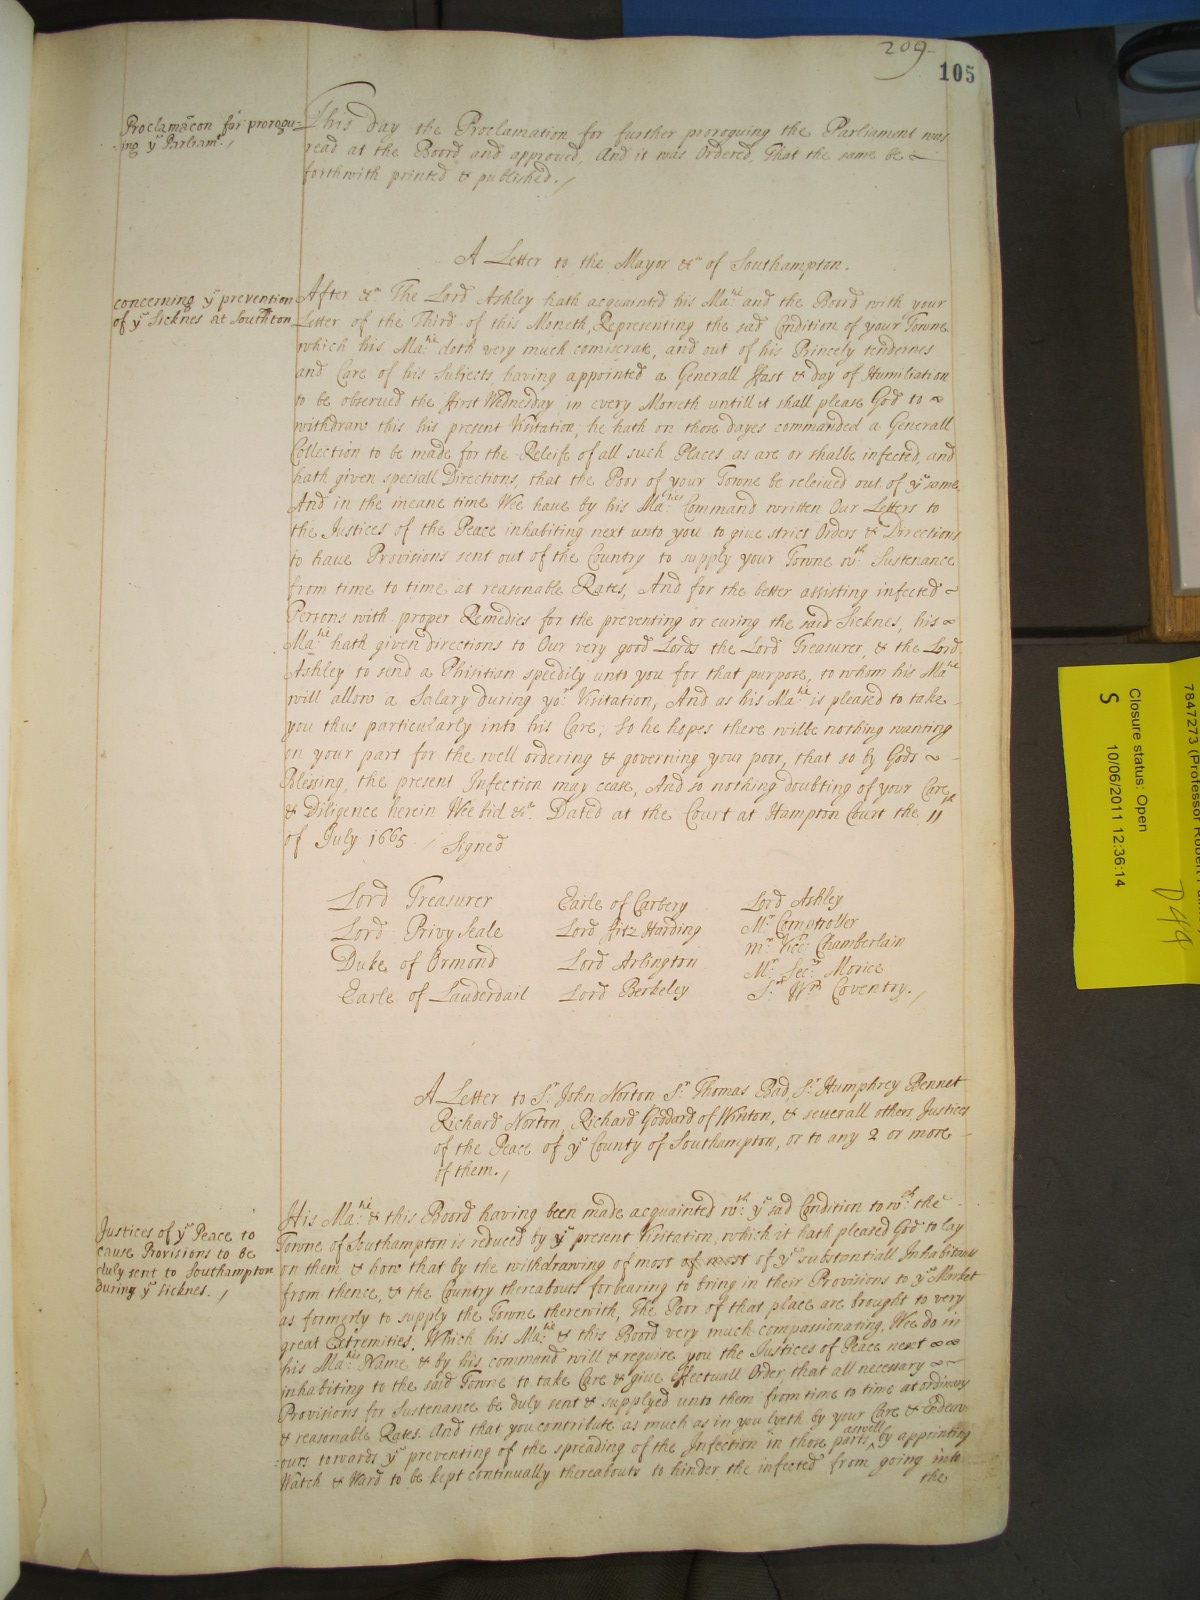 209
105
Proclamacon for prorogu=
=ing yͤ Parliamᵗ./
This day the Proclamation for further proroguing the Parliament was
read at the Board and approued, And it was Ordered, That the same be ~
forthwith printed & published./
A Letter to the Mayor &ᶜᵃ of Southampton.
concerning yͤ prevention
of yͤ Sicknes at Southton
After &ᶜᵃ The Lord Ashley hath acquainted his Ma:ᵗⁱᵉ and the Board with your
Letter of the Third of this Moneth, Representing the sad Condition of your Towne
which his Ma:ᵗⁱᵉ doth very much comiserate, and out of his Princely tendernes
and Care of his Subiects, having appointed a Generall ffast & day of Humiliation
to be observed the first Wednesday in every Moneth untill it shall please God to ~
withdraw this his present Visitation; he hath on those dayes commanded a Generall
Collection to be made for the Releife of all such Places as are or shalbe infected, and
hath given speciall Directions, that the Poor of your Towne be releived out of yͤ same,
And in the meane time Wee haue by his Ma:ᵗⁱᵉˢ Command written Our Letters to
the Justices of the Peace inhabiting next unto you to give strict Orders & Directions
to haue Provisions sent out of the Country to supply your Towne wᵗʰ: Sustenance
from time to time at reasonable Rates, And for the better assisting infected ~
Persons with proper Remedies for the preventing or curing the said Sicknes, his ~
Ma:ᵗⁱᵉ hath given directions to Our very good Lords the Lord Treasurer, & the Lord
Ashley to send a Phisition speedily unto you for that purpose, to whom his Maᵗⁱᵉ
will allow a Salary during yoʳ Visitation, And as his Ma:ᵗⁱᵉ is pleased to take
you thus particularly into his Care; So he hopes there wilbe nothing wanting
on your part for the well ordering & governing your poor, that so by Gods ~
Blessing, the present Infection may cease, And so nothing doubting of your Care
& Diligence herein Wee bid &ᶜᵃ. Dated at the Court at Hampton Court the 11ᵗʰ
of July 1665 Signed
Lord Treasurer Earle of Carbery Lord Ashley
Lord Privy Seale Lord fitz Harding Mʳ Comptroller
Duke of Ormond Lord Arlington mʳ Vice Chamberlain
Earle of Lauderdail Lord Berkeley Mʳ Secʳ: Morice
Sʳ Wᵐ Coventry./
A Letter to Sʳ: John Norton, Sʳ: Thomas Bad, Sʳ: Humphrey Bennet
Richard Norton, Richard Goddard of Winton, & severall others Justices
of the Peace of yͤ County of Southampton, or to any 2 or more
of them./
Justices of yͤ Peace to
cause Provisions to be
duly sent to Southampton
during yͤ sicknes./
His Ma:ᵗⁱᵉ & this Board having been made acquainted wᵗʰ: yͤ sad Condition to wᶜʰ: the
Towne of Southampton is reduced by yͤ present Visitation, which it hath pleased God to lay
on them & how that by the withdrawing of most of most of yͤ substantiall Inhabitants
from thence, & the Country thereabouts forbearing to bring in their Provisions to yͤ Market
as formerly to supply the Towne therewith, The Poor of that place are brought to very
great Extremities. Which his Ma:ᵗⁱᵉ & this Board very much compassionating, Wee do in
his Ma:ᵗⁱᵉˢ Name & by his command will & require you the Justices of Peace next ~~
inhabiting to the said Towne to take Care & give effectuall Order, that all necessary ~~
Provisions for Sustenance be duly sent & supplyed unto them from time to time at ordinary
& reasonable Rates. And that you contribute as much as in you lyeth by your Care & Endeav=
=ours towards yͤ preventing of the spreading of the Infection in those parts, aswell by appointing
Watch & Ward to be kept continually thereabouts to hinder the infected from going into
the
Closure status: Open
S 10/06/2011 12:36:14